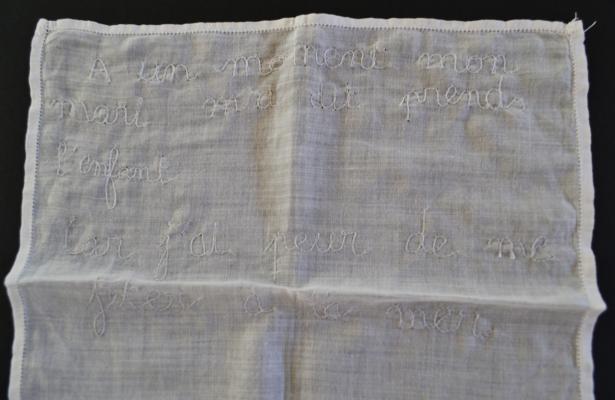 A un moment mon
mari m'a dit prends
l'enfant
Car j'ai peur de me
jeter à la mer.